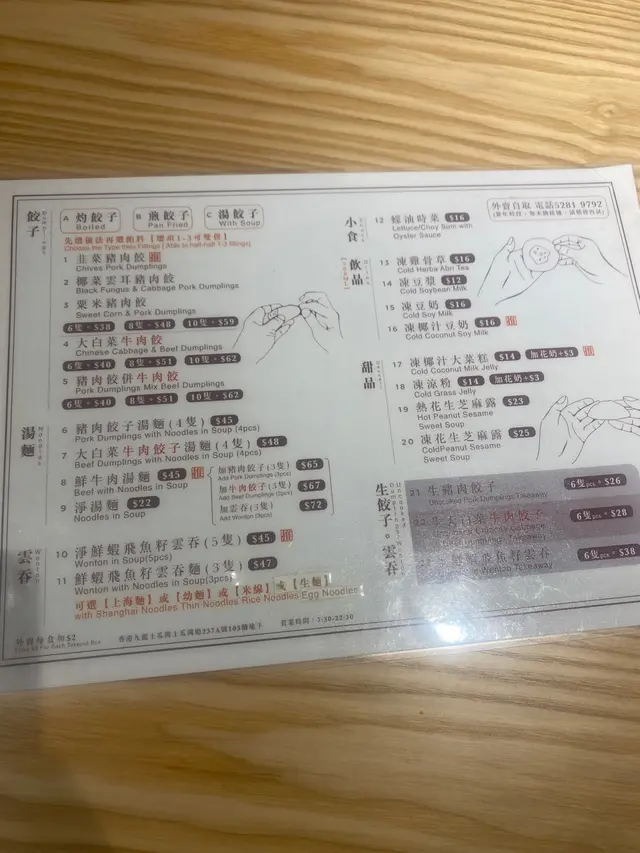 餃子
A 灼餃子 Boiled
B 煎餃子 Pan Fried
C 湯餃子 With Soup
1 韭菜豬肉餃
Chives Pork Dumplings
2 椰菜雲耳豬肉餃
Black Fungus & Cabbage Pork Dumplings
3 粟米豬肉餃
Sweet Corn & Pork Dumplings
6隻 · $38 8隻 · $48 10隻 · $59
4 大白菜牛肉餃
Chinese Cabbage & Beef Dumplings
6隻 · $40 8隻 · $51 10隻 · $62
5 豬肉餃併牛肉餃
Pork Dumplings Mix Beef Dumplings
6隻 · $40 8隻 · $51 10隻 · $62
湯麵
Noodles
6 豬肉餃子湯麵(4隻) $45
Pork Dumplings with Noodles in Soup (4pcs)
7 大白菜牛肉餃子湯麵(4隻) $48
Beef Dumplings with Noodles in Soup (4pcs)
8 鮮牛肉湯麵 $45
Beef with Noodles in Soup
9 淨湯麵 $22
Noodles in Soup
加豬肉餃子(3隻) $65
Add Pork Dumplings (3pcs)
加牛肉餃子(3隻) $67
Add Beef Dumplings (3pcs)
加雲吞(3隻) $72
Add Wonton (3pcs)
雲吞
Wonton
10 淨鮮蝦飛魚籽雲吞(5隻) $45
Wonton in Soup(5pcs)
11 鮮蝦飛魚籽雲吞麵(3隻) $47
Wonton with Noodles in Soup(3pcs)
可選【上海麵】或【幼麵】或【米線】或【生麵】
with Shanghai Noodles Thin Noodles Rice Noodles Egg Noodles
外賣每盒加$2
營業時間 / 7:30-22:30
外賣自取 電話5281 9792
小食
12 蠔油時菜 $16
Lettuce/Choy Sum with
Oyster Sauce
飲品
13 凍雞骨草 $16
Cold Herba Abri Tea
14 凍豆漿 $12
Cold Soybean Milk
15 凍豆奶 $16
Cold Soy Milk
16 凍椰汁豆奶 $16
Cold Coconut Soy Milk
甜品
17 凍椰汁大菜糕 $14 加花奶+$3
Cold Coconut Milk Jelly
18 凍涼粉 $14 加花奶+$3
Cold Grass Jelly
19 熱花生芝麻露 $23
Hot Peanut Sesame
Sweet Soup
20 凍花生芝麻露 $25
ColdPeanut Sesame
Sweet Soup
生餃子。雲吞
21 生豬肉餃子 6隻pcs · $26
Uncooked Pork Dumplings Takeaway
22 生大白菜牛肉餃子 6隻pcs · $28
飛魚籽雲吞 6隻pcs · $38